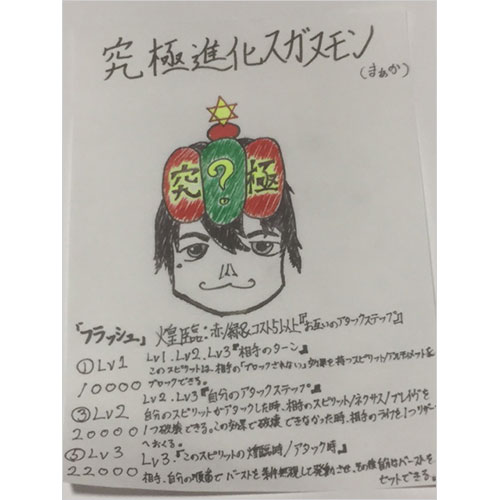 究極進化スガヌモン
(まぁか)
究?極
「フラッシュ」 煌臨:赤/緑&コスト5以上『お互いのアタックステップ』
①Lv1 Lv1.Lv2.Lv3『相手のターン』
このスピリットは相手の「ブロックされない」効果を持つスピリット/アルティメットを
10000 ブロックできる。
Lv2.Lv3『自分のアタックステップ』
③Lv2 自分のスピリットがアタックした時、相手のスピリット/ネクサス/ブレイヴを
20000 1つ破壊できる。この効果で破壊できなかった時、相手のライフを1つリザー
へおくる。
⑤Lv3 Lv3.『このスピリットの煌臨時/アタック時』
22000 相手、自分の順番でバーストを条件無視して発動させ、その後自分はバーストを
セットできる。